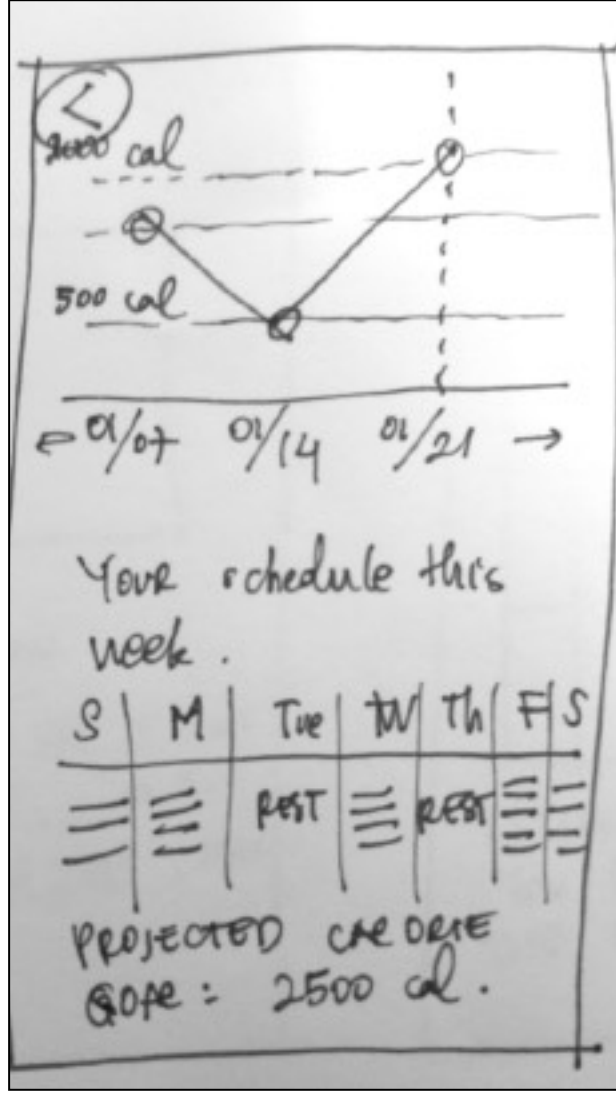 <
2000 cal
500 cal
← 01/07 01/14 01/21 →
Your schedule this
week.
S M Tue W Th F S
REST REST
PROJECTED CALORIE
GOAL: 2500 cal.